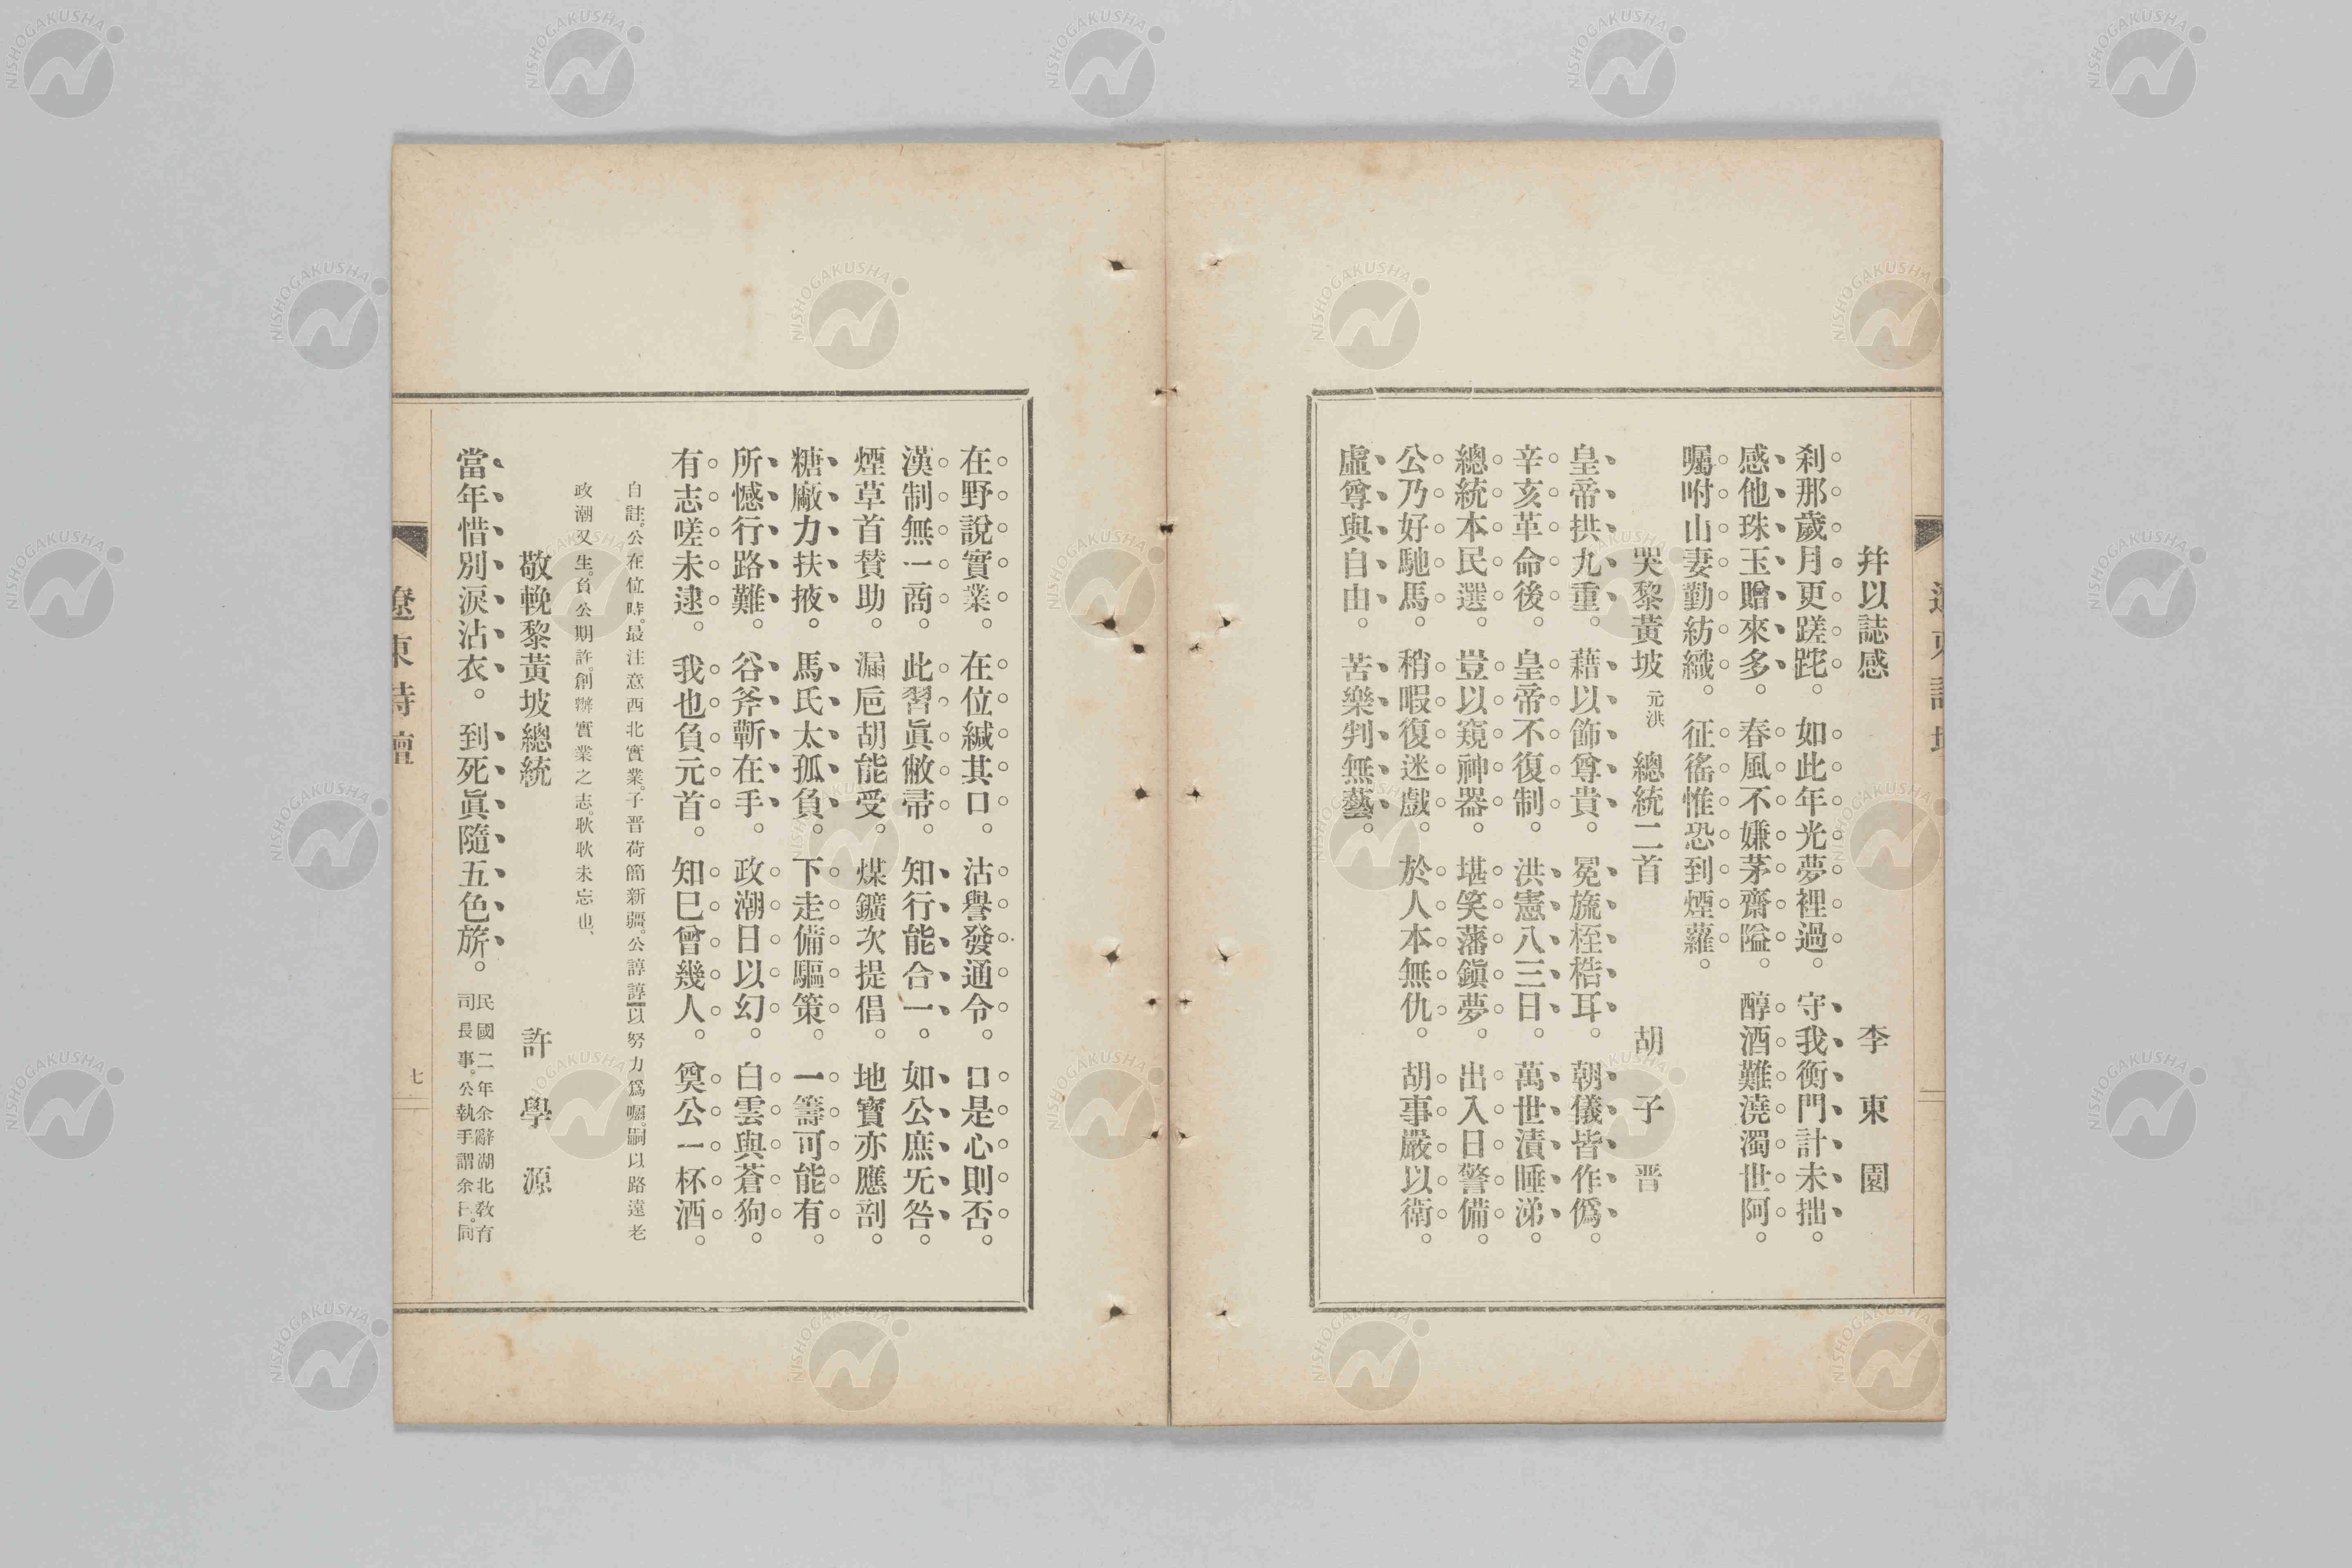 幷以誌感　李東園
刹那歲月更蹉跎。如此年光夢裡過。守我衡門計未拙。
感他珠玉贈來多。春風不嫌茅齋隘。醇酒難澆濁世阿。
囑咐山妻勤紡織。征徭惟恐到煙蘿。
哭黎黃坡元洪總統二首　胡子晋
皇帝拱九重。藉以飾尊貴。冕旒桎梏耳。朝儀皆作僞。
辛亥革命後。皇帝不復制。洪憲八三日。萬世漬睡涕。
總統本民選。豈以窺神器。堪笑藩鎭夢。出入日警備。
公乃好馳馬。稍暇復迷戲。於人本無仇。胡事嚴以衛。
虛尊與自由。苦樂判無藝。
在野說實業。在位緘其口。沽譽發通令。口是心則否。
漢制無一商。此習眞敝帚。知行能合一。如公庶旡咎。
煙草首賛助。漏巵胡能受。煤鑛次提倡。地寶亦應剖。
糖廠力扶掖。馬氏太孤負。下走備驅策。一籌可能有。
所憾行路難。谷斧斬在手。政潮日以幻。白雲與蒼狗。
有志嗟未逮。我也負元首。知巳曾幾人。奠公一杯酒。
自註。公在位時。最注意西北實業。子晋荷簡新疆。公諄諄以努力爲囑。嗣以路遠老
政潮又生。負公期許。創辦實業之志。耿耿未忘也、
敬輓黎黃坡總統　許學源
當年惜別淚沾衣。到死眞隨五色旂。民國二年余辭湖北敎育
司長事。公執手謂余曰。同
遼東詩壇　七
NISHOGAKUSHA